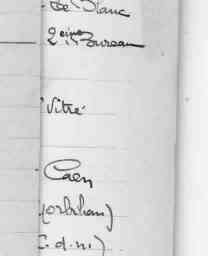 Le Blanc
2eme Bureau
Vitré
Caen
(Morbihan)
C. d. n.)